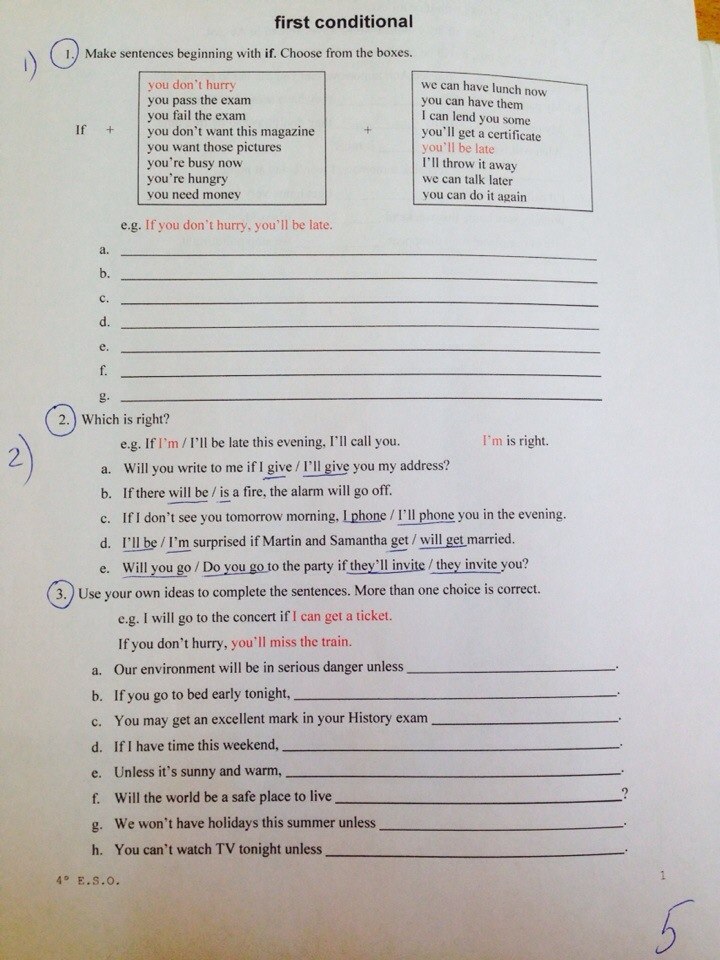 first conditional
1) 1. Make sentences beginning with if. Choose from the boxes.
If +
you don't hurry
you pass the exam
you fail the exam
you don't want this magazine
you want those pictures
you're busy now
you're hungry
you need money
+
we can have lunch now
you can have them
I can lend you some
you'll get a certificate
you'll be late
I'll throw it away
we can talk later
you can do it again
e.g. If you don't hurry, you'll be late.
a.
b.
c.
d.
e.
f.
g.
2) 2. Which is right?
e.g. If I'm / I'll be late this evening, I'll call you. I'm is right.
a. Will you write to me if I give / I'll give you my address?
b. If there will be / is a fire, the alarm will go off.
c. If I don't see you tomorrow morning, I phone / I'll phone you in the evening.
d. I'll be / I'm surprised if Martin and Samantha get / will get married.
e. Will you go / Do you go to the party if they'll invite / they invite you?
3. Use your own ideas to complete the sentences. More than one choice is correct.
e.g. I will go to the concert if I can get a ticket.
If you don't hurry, you'll miss the train.
a. Our environment will be in serious danger unless ____.
b. If you go to bed early tonight, ____.
c. You may get an excellent mark in your History exam ____.
d. If I have time this weekend, ____.
e. Unless it's sunny and warm, ____.
f. Will the world be a safe place to live ____?
g. We won't have holidays this summer unless ____.
h. You can't watch TV tonight unless ____.
4º E.S.O. 1
5